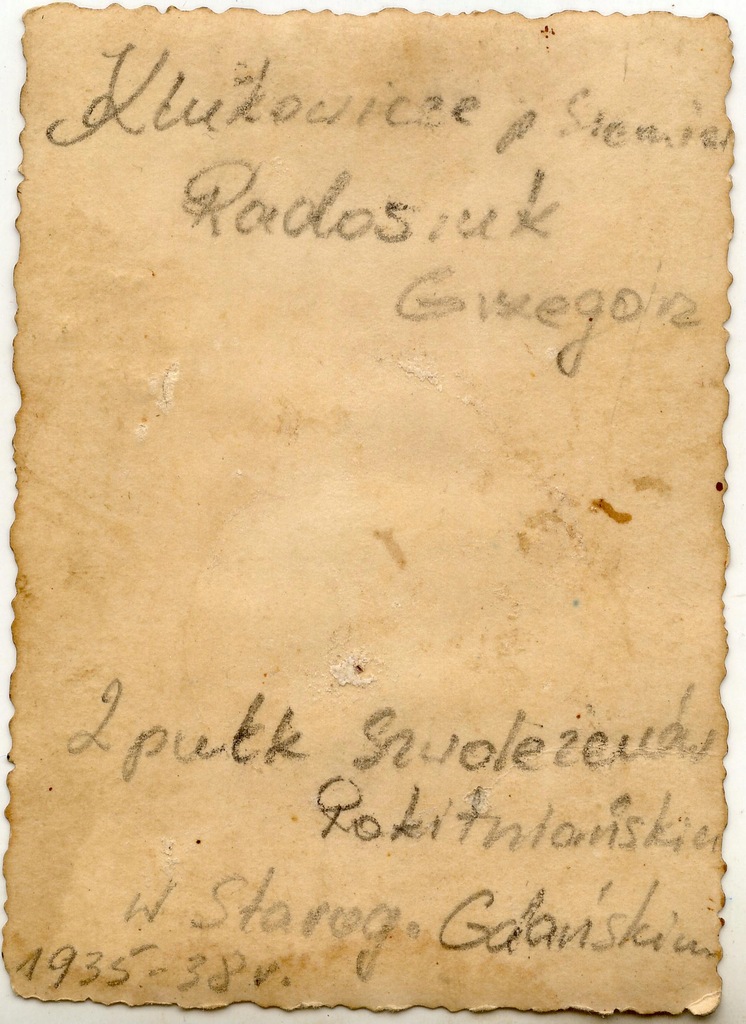 Klukowicze p Siemia
Radosiuk
Grzegorz
2 pułk Szwoleżerów
Rokitniańskich
w Starog. Gdańskim
1935-38 r.